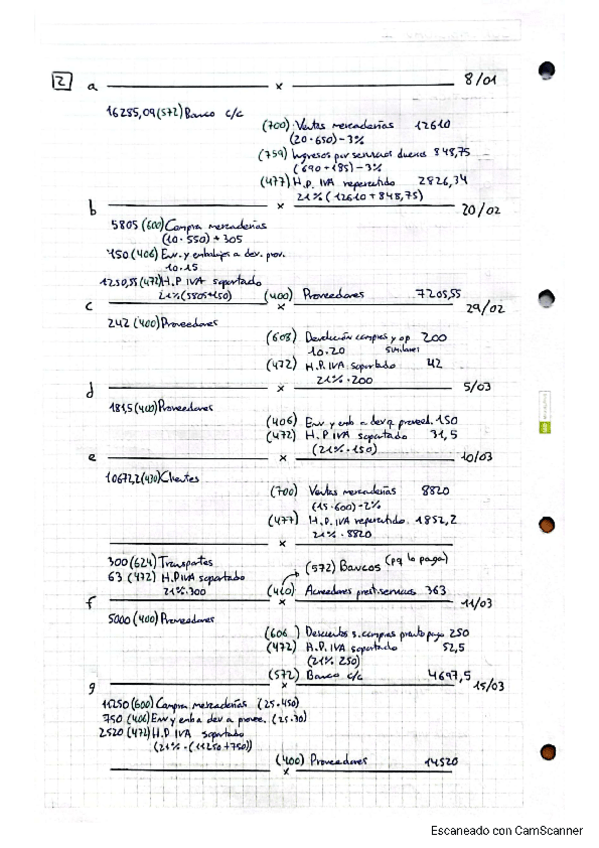 2 a x 8/01
16285,09 (572) Banco c/c
(700) Ventas mercaderías 12610
(20·650) - 3%
(759) Ingresos por servicios diversos 848,75
(690 + 185) - 3%
(477) H.P. IVA repercutido 2826,34
21% (12610 + 848,75)
b x 20/02
5805 (600) Compra mercaderías
(10·550) + 305
150 (406) Env. y embalajes a dev. prov.
10·15
1250,55 (472) H.P IVA soportado
21% (5805+150) (400) Proveedores 7205,55
c x 29/02
242 (400) Proveedores
(608) Devolución compras y op 200
10·20 similares
(472) H.P. IVA soportado 42
21% · 200
d x 5/03
181,5 (400) Proveedores
(406) Env y emb a dev a proveed. 150
(472) H.P IVA soportado 31,5
(21% · 150)
e x 10/03
10672,2 (430) Clientes
(700) Ventas mercaderías 8820
(15·600) - 2%
(477) H.P. IVA repercutido 1852,2
21% · 8820
x
300 (624) Transportes
(572) Bancos (pq lo paga)
63 (472) H.P IVA soportado
21% · 300 (410) Acreedores prest. servicios 363
f x 11/03
5000 (400) Proveedores
(606) Descuentos s. compras pronto pago 250
(472) H.P. IVA soportado 52,5
(21% 250)
(572) Banco c/c 4697,5
g x 15/03
11250 (600) Compra mercaderías (25·450)
750 (406) Env y emb a dev a provee. (25·30)
2520 (472) H.P IVA soportado
(21% · (11250 + 750))
(400) Proveedores 14520
x
Escaneado con CamScanner